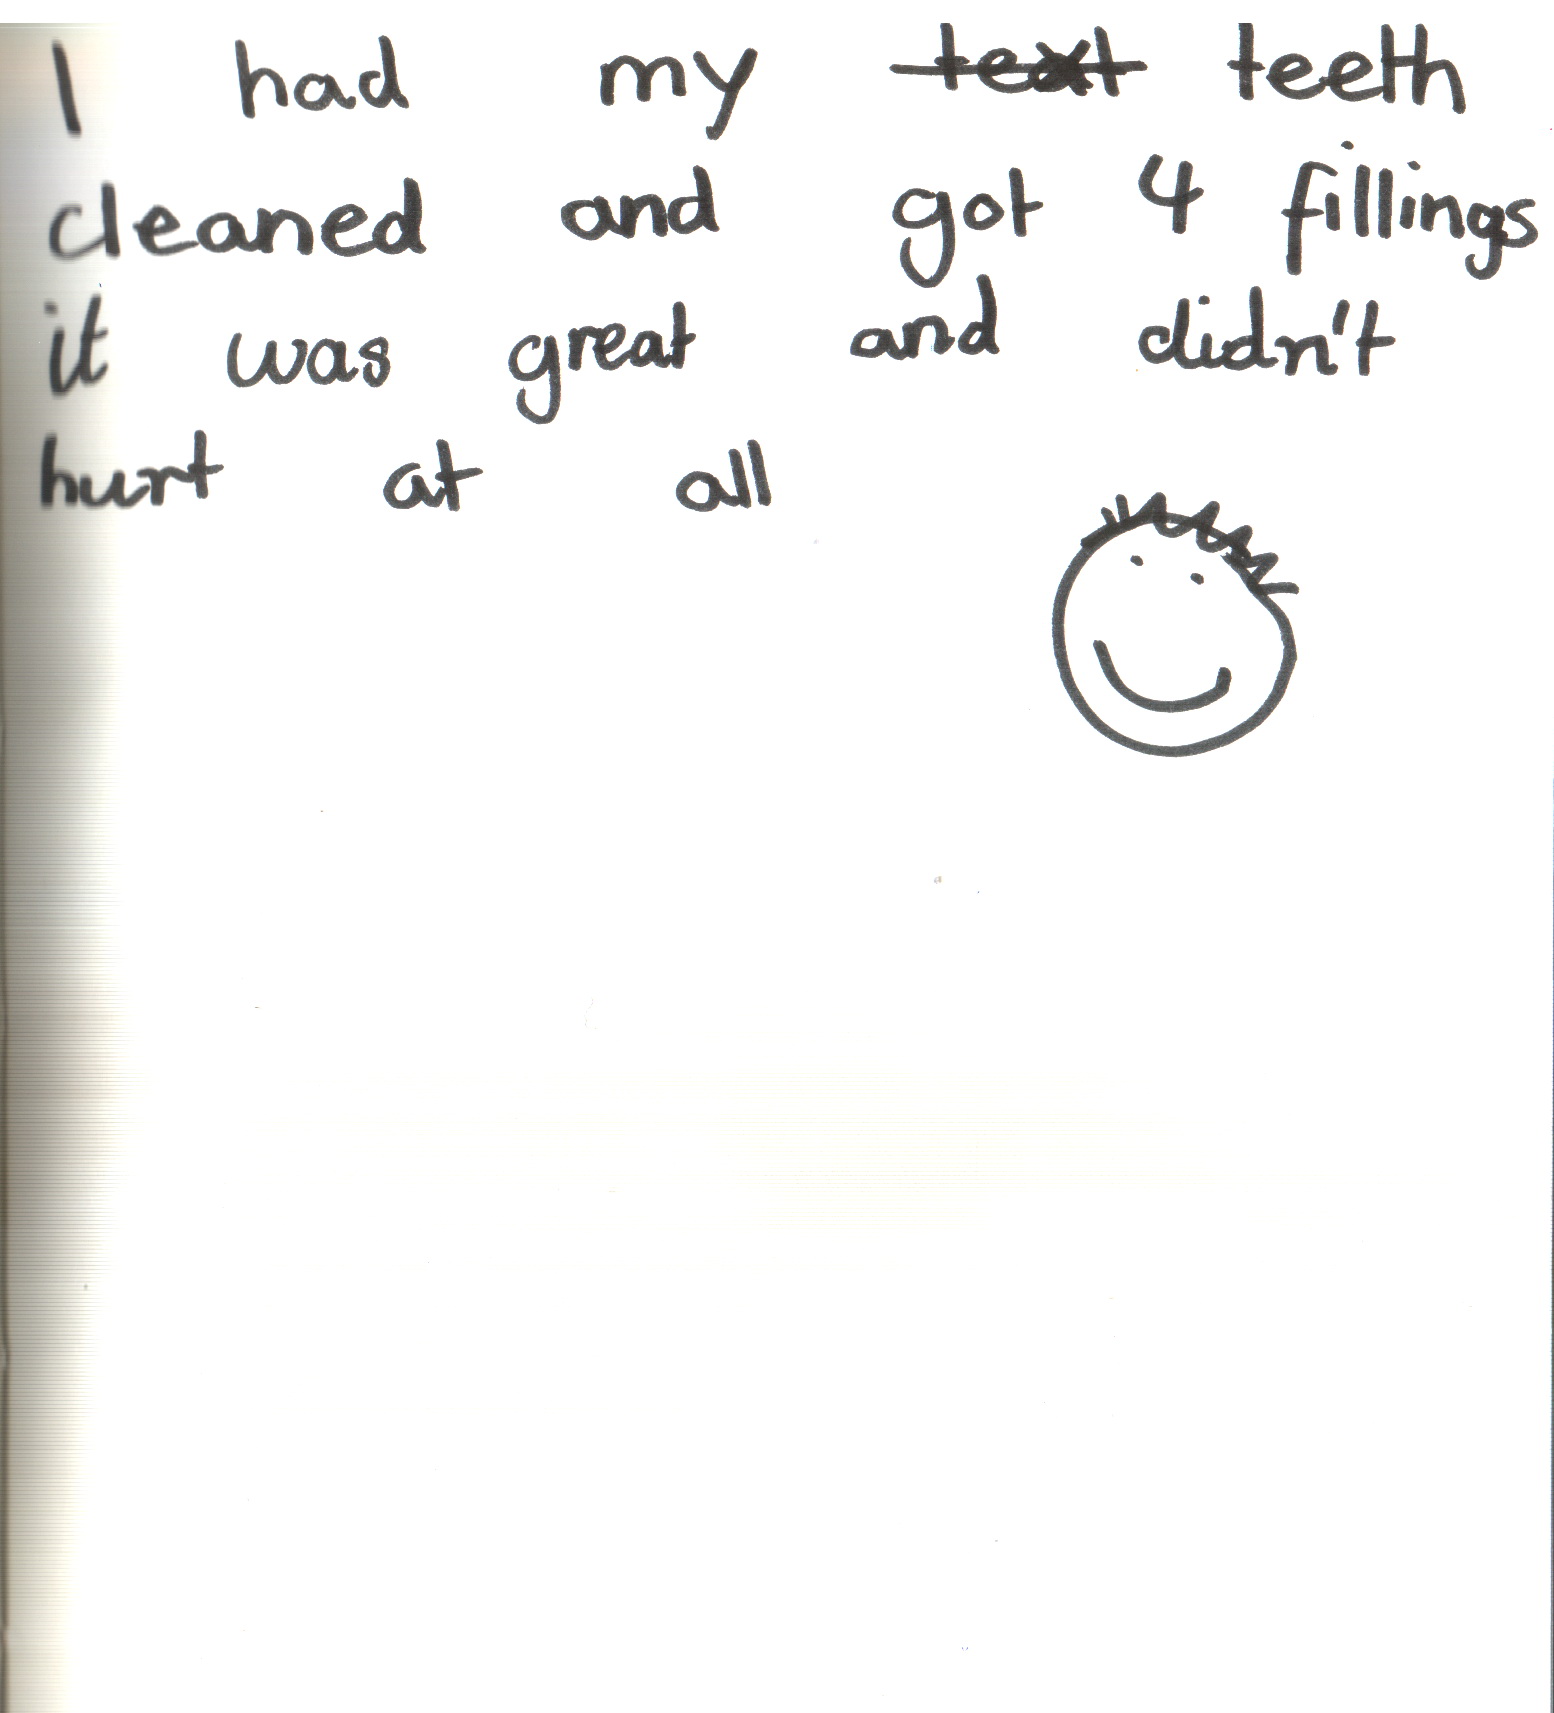 I had my teeth
cleaned and got 4 fillings
it was great and didn't
hurt at all